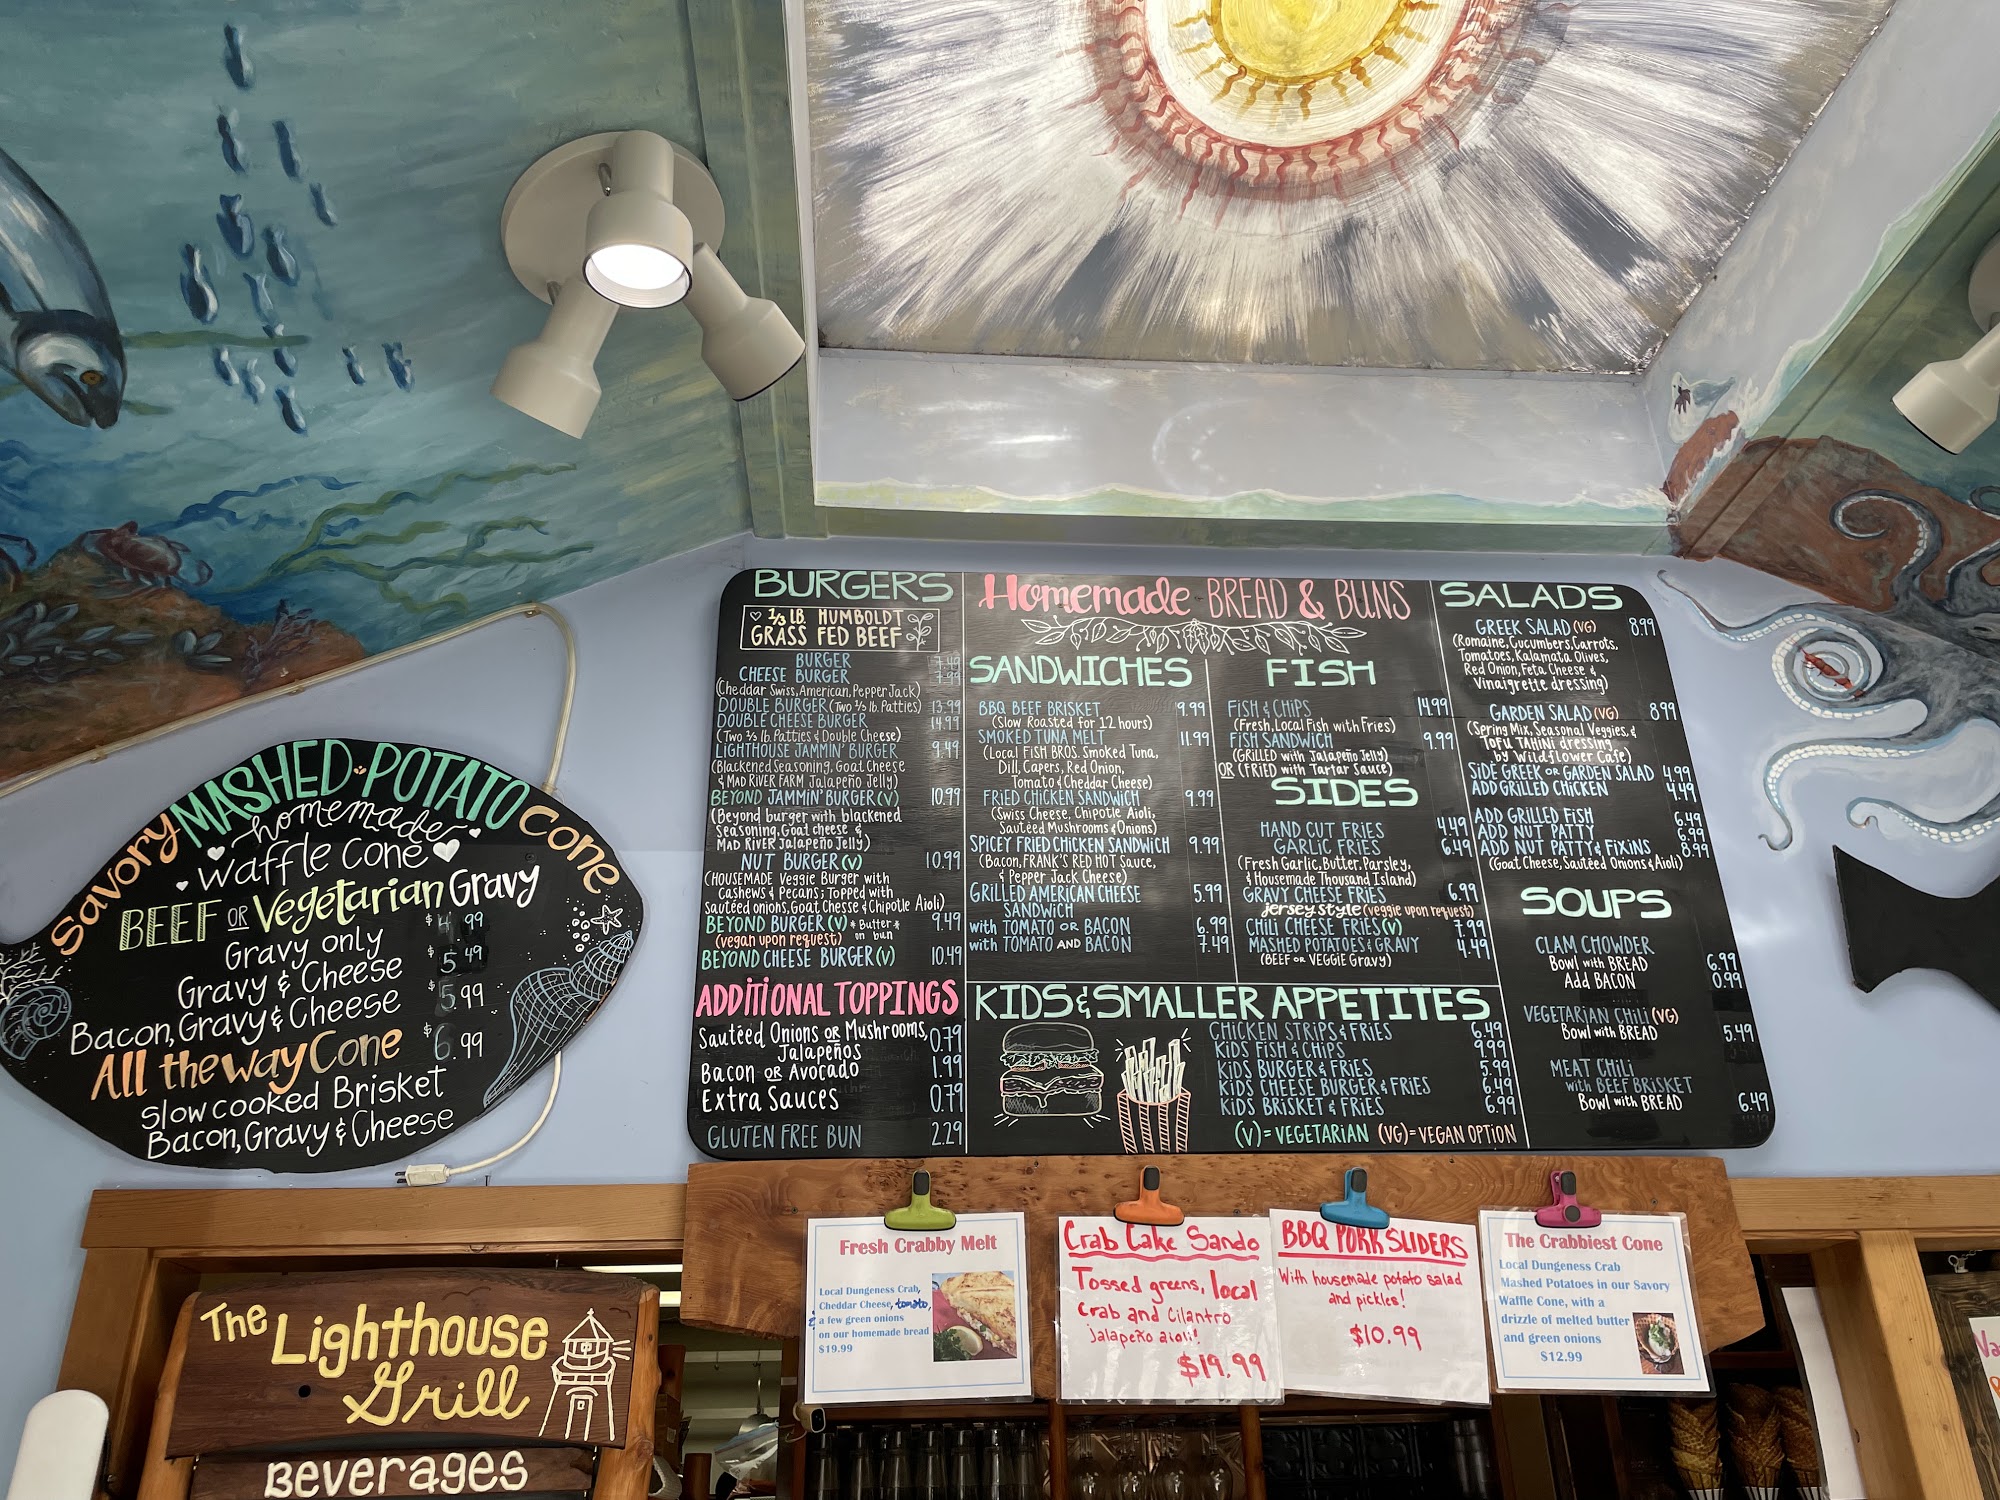 Savory MASHED·POTATO Cone
homemade
Waffle Cone
BEEF OR Vegetarian Gravy
Gravy only $4.99
Gravy & Cheese $5.49
Bacon, Gravy & Cheese $5.99
All the way Cone $6.99
Slow cooked Brisket
Bacon, Gravy & Cheese
The Lighthouse
Grill
Beverages
BURGERS
1/3 LB. HUMBOLDT
GRASS FED BEEF
BURGER 7.49
CHEESE BURGER 7.99
(Cheddar Swiss, American, Pepper Jack)
DOUBLE BURGER (Two 1/3 lb. Patties) 13.99
DOUBLE CHEESE BURGER 14.99
(Two 1/3 lb. Patties & Double Cheese)
LIGHTHOUSE JAMMIN' BURGER 9.49
(Blackened Seasoning, Goat Cheese
& MAD RIVER FARM Jalapeño Jelly)
BEYOND JAMMIN' BURGER (V) 10.99
(Beyond burger with blackened
Seasoning, Goat cheese &
MAD RIVER Jalapeño Jelly)
NUT BURGER (V) 10.99
(HOUSEMADE Veggie Burger with
Cashews & Pecans; Topped with
Sautéed onions, Goat Cheese & Chipotle Aioli)
BEYOND BURGER (V) & Butter & 9.49
(vegan upon request) on bun
BEYOND CHEESE BURGER (V) 10.49
ADDITIONAL TOPPINGS
Sautéed Onions OR Mushrooms, 0.79
Jalapeños
Bacon OR Avocado 1.99
Extra Sauces 0.79
GLUTEN FREE BUN 2.29
Homemade BREAD & BUNS
SANDWICHES
BBQ BEEF BRISKET 9.99
(Slow Roasted for 12 hours)
SMOKED TUNA MELT 11.99
(Local FISH BROS. Smoked Tuna,
Dill, Capers, Red Onion,
Tomato & Cheddar Cheese)
FRIED CHICKEN SANDWICH 9.99
(Swiss Cheese, Chipotle Aioli,
Sautéed Mushrooms & Onions)
SPICEY FRIED CHICKEN SANDWICH 9.99
(Bacon, FRANK'S RED HOT Sauce,
& Pepper Jack Cheese)
GRILLED AMERICAN CHEESE 5.99
SANDWICH
with TOMATO OR BACON 6.99
with TOMATO AND BACON 7.49
FISH
FISH & CHIPS 14.99
(Fresh, Local Fish with Fries)
FISH SANDWICH 9.99
(GRILLED with Jalapeño Jelly)
OR (FRIED with Tartar Sauce)
SIDES
HAND CUT FRIES 4.49
GARLIC FRIES 6.49
(Fresh Garlic, Butter, Parsley,
& Housemade Thousand Island)
GRAVY CHEESE FRIES 6.99
Jersey style (veggie upon request)
CHILI CHEESE FRIES (V) 7.99
MASHED POTATOES & GRAVY 4.49
(BEEF OR VEGGIE Gravy)
KIDS & SMALLER APPETITES
CHICKEN STRIPS & FRIES 6.49
KIDS FISH & CHIPS 9.99
KIDS BURGER & FRIES 5.99
KIDS CHEESE BURGER & FRIES 6.49
KIDS BRISKET & FRIES 6.99
(V) = VEGETARIAN (VG) = VEGAN OPTION
SALADS
GREEK SALAD (VG) 8.99
(Romaine, Cucumbers, Carrots,
Tomatoes, Kalamata Olives,
Red Onion, Feta Cheese &
Vinaigrette dressing)
GARDEN SALAD (VG) 8.99
(Spring Mix, Seasonal Veggies, &
TOFU TAHINI dressing
by Wildflower Cafe)
SIDE GREEK OR GARDEN SALAD 4.99
ADD GRILLED CHICKEN 4.49
ADD GRILLED FISH 6.49
ADD NUT PATTY 6.99
ADD NUT PATTY & FIXINS 8.99
(Goat Cheese, Sautéed Onions & Aioli)
SOUPS
CLAM CHOWDER
Bowl with BREAD 6.99
Add BACON 0.99
VEGETARIAN CHILI (VG)
Bowl with BREAD 5.49
MEAT CHILI
with BEEF BRISKET
Bowl with BREAD 6.49
Fresh Crabby Melt
Local Dungeness Crab,
Cheddar Cheese, tomato,
& a few green onions
on our homemade bread
$19.99
Crab Cake Sando
Tossed greens, local
crab and cilantro
jalapeño aioli!
$19.99
BBQ PORK SLIDERS
With housemade potato salad
and pickles!
$10.99
The Crabbiest Cone
Local Dungeness Crab
Mashed Potatoes in our Savory
Waffle Cone, with a
drizzle of melted butter
and green onions
$12.99